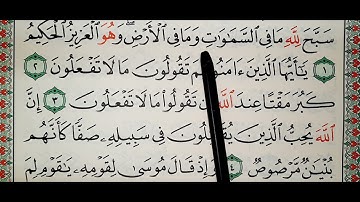 سَبَّحَ لِلَّهِ مَا فِي ٱلسَّمَٰوَٰتِ وَمَا فِي ٱلْأَرْضِۖ وَهُوَ ٱلْعَزِيزُ ٱلْحَكِيمُ
١ يَٰٓأَيُّهَا ٱلَّذِينَ ءَامَنُوا۟ تَقُولُونَ مَا لَا تَفْعَلُونَ ٢
كَبُرَ مَقْتًا عِندَ ٱللَّهِ تَقُولُوا۟ مَا لَا تَفْعَلُونَ ٣ إِنَّ
ٱللَّهَ يُحِبُّ ٱلَّذِينَ يُقَٰتِلُونَ فِي سَبِيلِهِۦ صَفًّا كَأَنَّهُم
بُنْيَٰنٌ مَّرْصُوصٌ ٤ وَإِذْ قَالَ مُوسَىٰ لِقَوْمِهِۦ يَٰقَوْمِ لِمَ